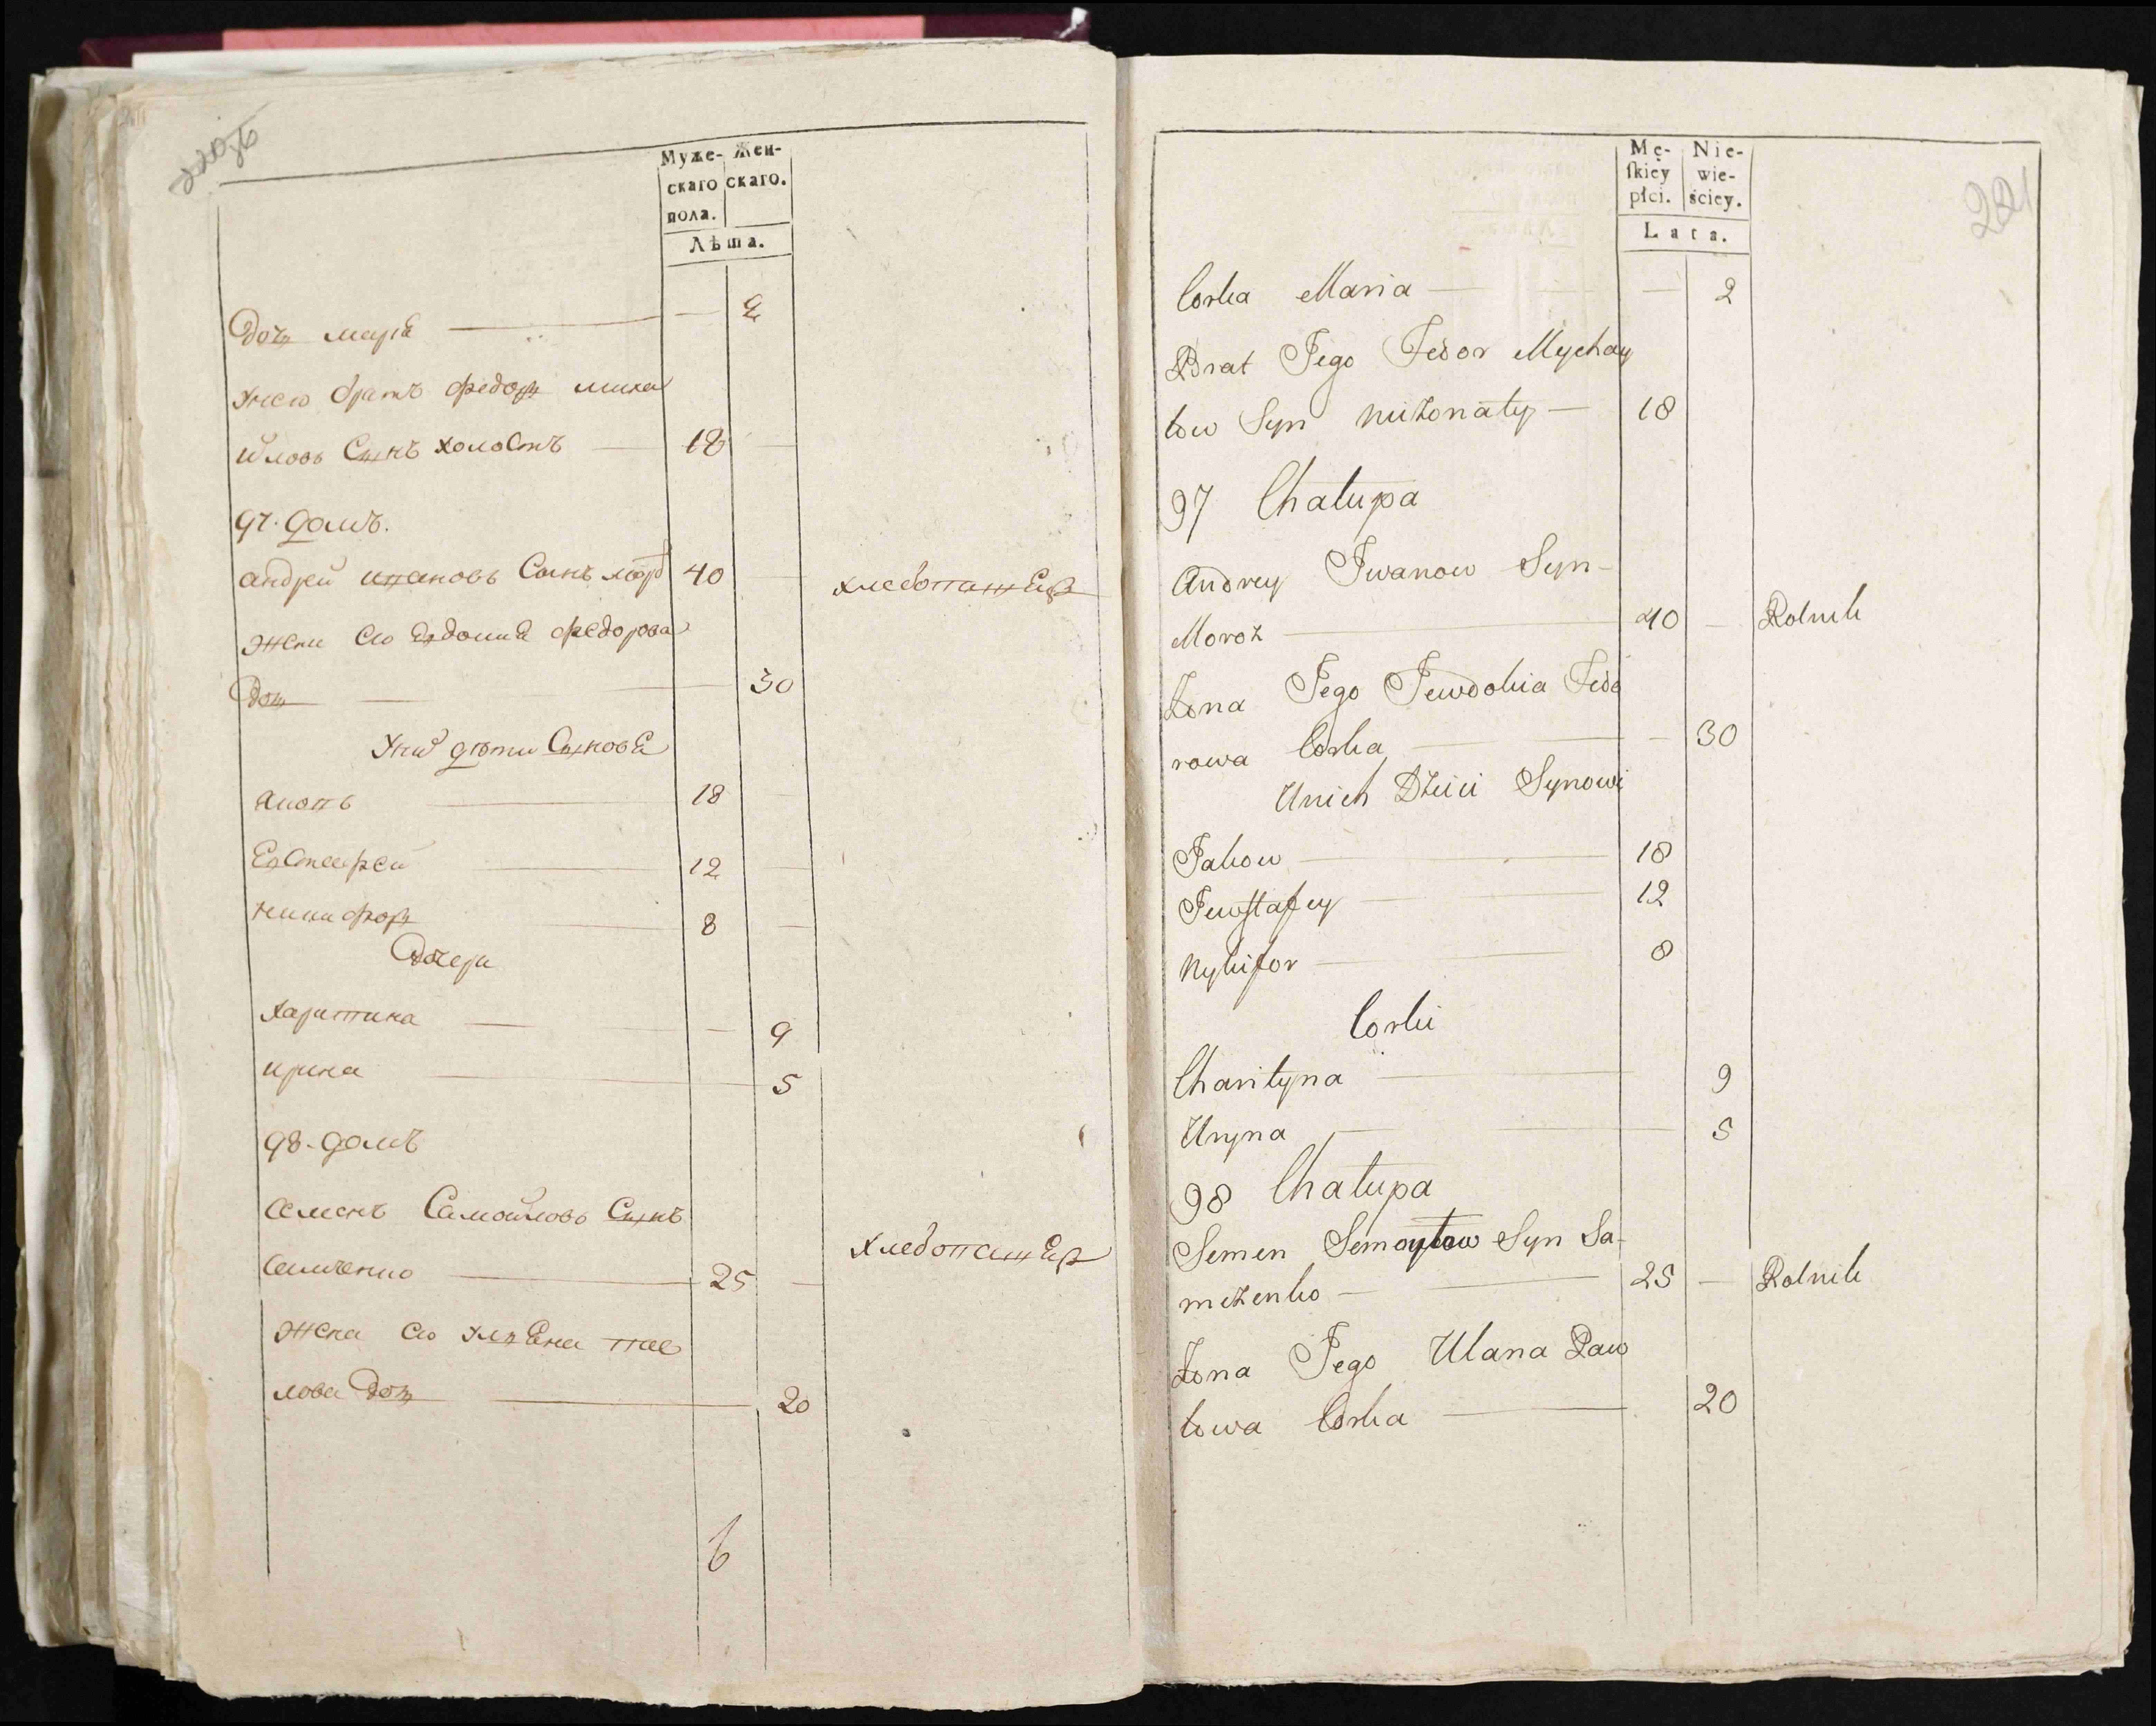 220об
Муже- Жен-
скаго скаго.
пола.
Лѣта.
Дочь маря — — 2
унего братъ федоръ миха
йловъ Сынъ холостъ — 18 —
97. домъ.
андрей ивановъ Сынъ мороз 40 — хлебопашецъ
жена его евдокиа федорова
Дочь — — 30
Уних дѣти Сыновя
Яковъ — 18 —
Евстафей — 12 —
никифоръ — 8 —
Дочери
Харитина — — 9
ирина — 5
98. домъ
Семенъ Самойловъ Сынъ
— 25 — хлебопашецъ
жена его улияна пав
лова Дочь — 20
6
221
Mę- Nie-
ſkiey wie-
płci. ściey.
Lata.
Corka Maria — — 2
Brat Jego Fedor Mychay
łow Syn nieżonaty — 18
97 Chałupa
Andrey Iwanow Syn -
Moroz — 40 — Rolnik
Żona Jego Jewdokia Fedo
rowa Corka — — 30
Unich Dzieci Synowi
Jakow — 18
Jewstafey — 12
Nykifor — 8
Corki
Charityna — 9
Uryna — 5
98 Chałupa
Semen Semoyłow Syn Sa-
mczenko — 25 — Rolnik
Żona Jego Ulana Paw
łowa Corka — 20